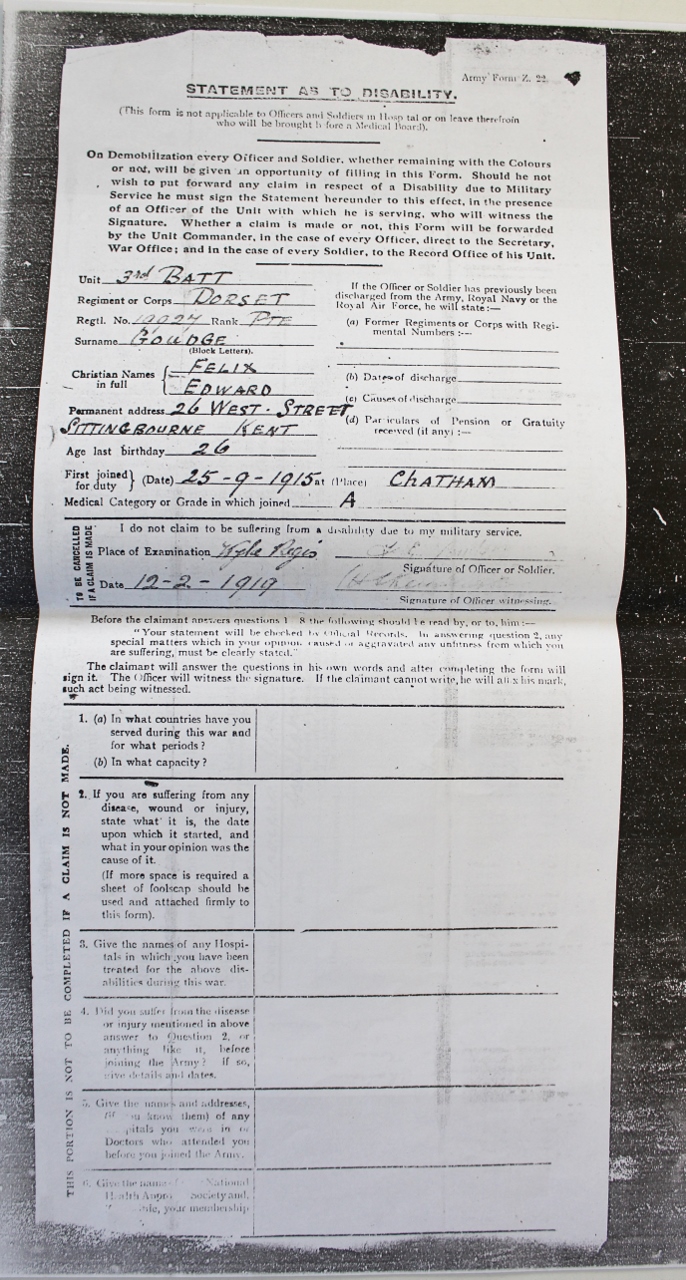 Army Form Z. 22.
STATEMENT AS TO DISABILITY.
(This form is not applicable to Officers and Soldiers in Hosp tal or on leave therefrom
who will be brought b fore a Medical Board).
On Demobilization every Officer and Soldier, whether remaining with the Colours
or not, will be given an opportunity of filling in this Form. Should he not
wish to put forward any claim in respect of a Disability due to Military
Service he must sign the Statement hereunder to this effect, in the presence
of an Officer of the Unit with which he is serving, who will witness the
Signature. Whether a claim is made or not, this Form will be forwarded
by the Unit Commander, in the case of every Officer, direct to the Secretary,
War Office; and in the case of every Soldier, to the Record Office of his Unit.
Unit 3rd BATT
Regiment or Corps DORSET
Regtl. No. Rank PTE
Surname GOUDGE
(Block Letters).
Christian Names in full { FELIX
EDWARD
Permanent address 26 WEST. STREET
SITTINGBOURNE KENT
Age last birthday 26
If the Officer or Soldier has previously been
discharged from the Army, Royal Navy or the
Royal Air Force, he will state:—
(a) Former Regiments or Corps with Regi-
mental Numbers :—
(b) Dates of discharge
(c) Causes of discharge
(d) Particulars of Pension or Gratuity
received (if any) :—
First joined for duty } (Date) 25-9-1915 at (Place) CHATHAM
Medical Category or Grade in which joined A
TO BE CANCELLED
IF A CLAIM IS MADE
I do not claim to be suffering from a disability due to my military service.
Place of Examination Wyke Regis
Signature of Officer or Soldier.
Date 12-2-1919
Signature of Officer witnessing.
Before the claimant answers questions 1 8 the following should be read by, or to, him :—
"Your statement will be checked by Official Records. In answering question 2, any
special matters which in your opinion caused or aggravated any unfitness from which you
are suffering, must be clearly stated."
The claimant will answer the questions in his own words and after completing the form will
sign it. The Officer will witness the signature. If the claimant cannot write, he will affix his mark,
such act being witnessed.
THIS PORTION IS NOT TO BE COMPLETED IF A CLAIM IS NOT MADE.
1. (a) In what countries have you
served during this war and
for what periods?
(b) In what capacity?
2. If you are suffering from any
disease, wound or injury,
state what it is, the date
upon which it started, and
what in your opinion was the
cause of it.
(If more space is required a
sheet of foolscap should be
used and attached firmly to
this form).
3. Give the names of any Hospi-
tals in which you have been
treated for the above dis-
abilities during this war.
4. Did you suffer from the disease
or injury mentioned in above
answer to Question 2, or
anything like it, before
joining the Army? If so,
give details and dates.
5. Give the names and addresses,
(if you know them) of any
pitals you were in or
Doctors who attended you
before you joined the Army.
6. Give the name National
Health Appro Society and,
your membership